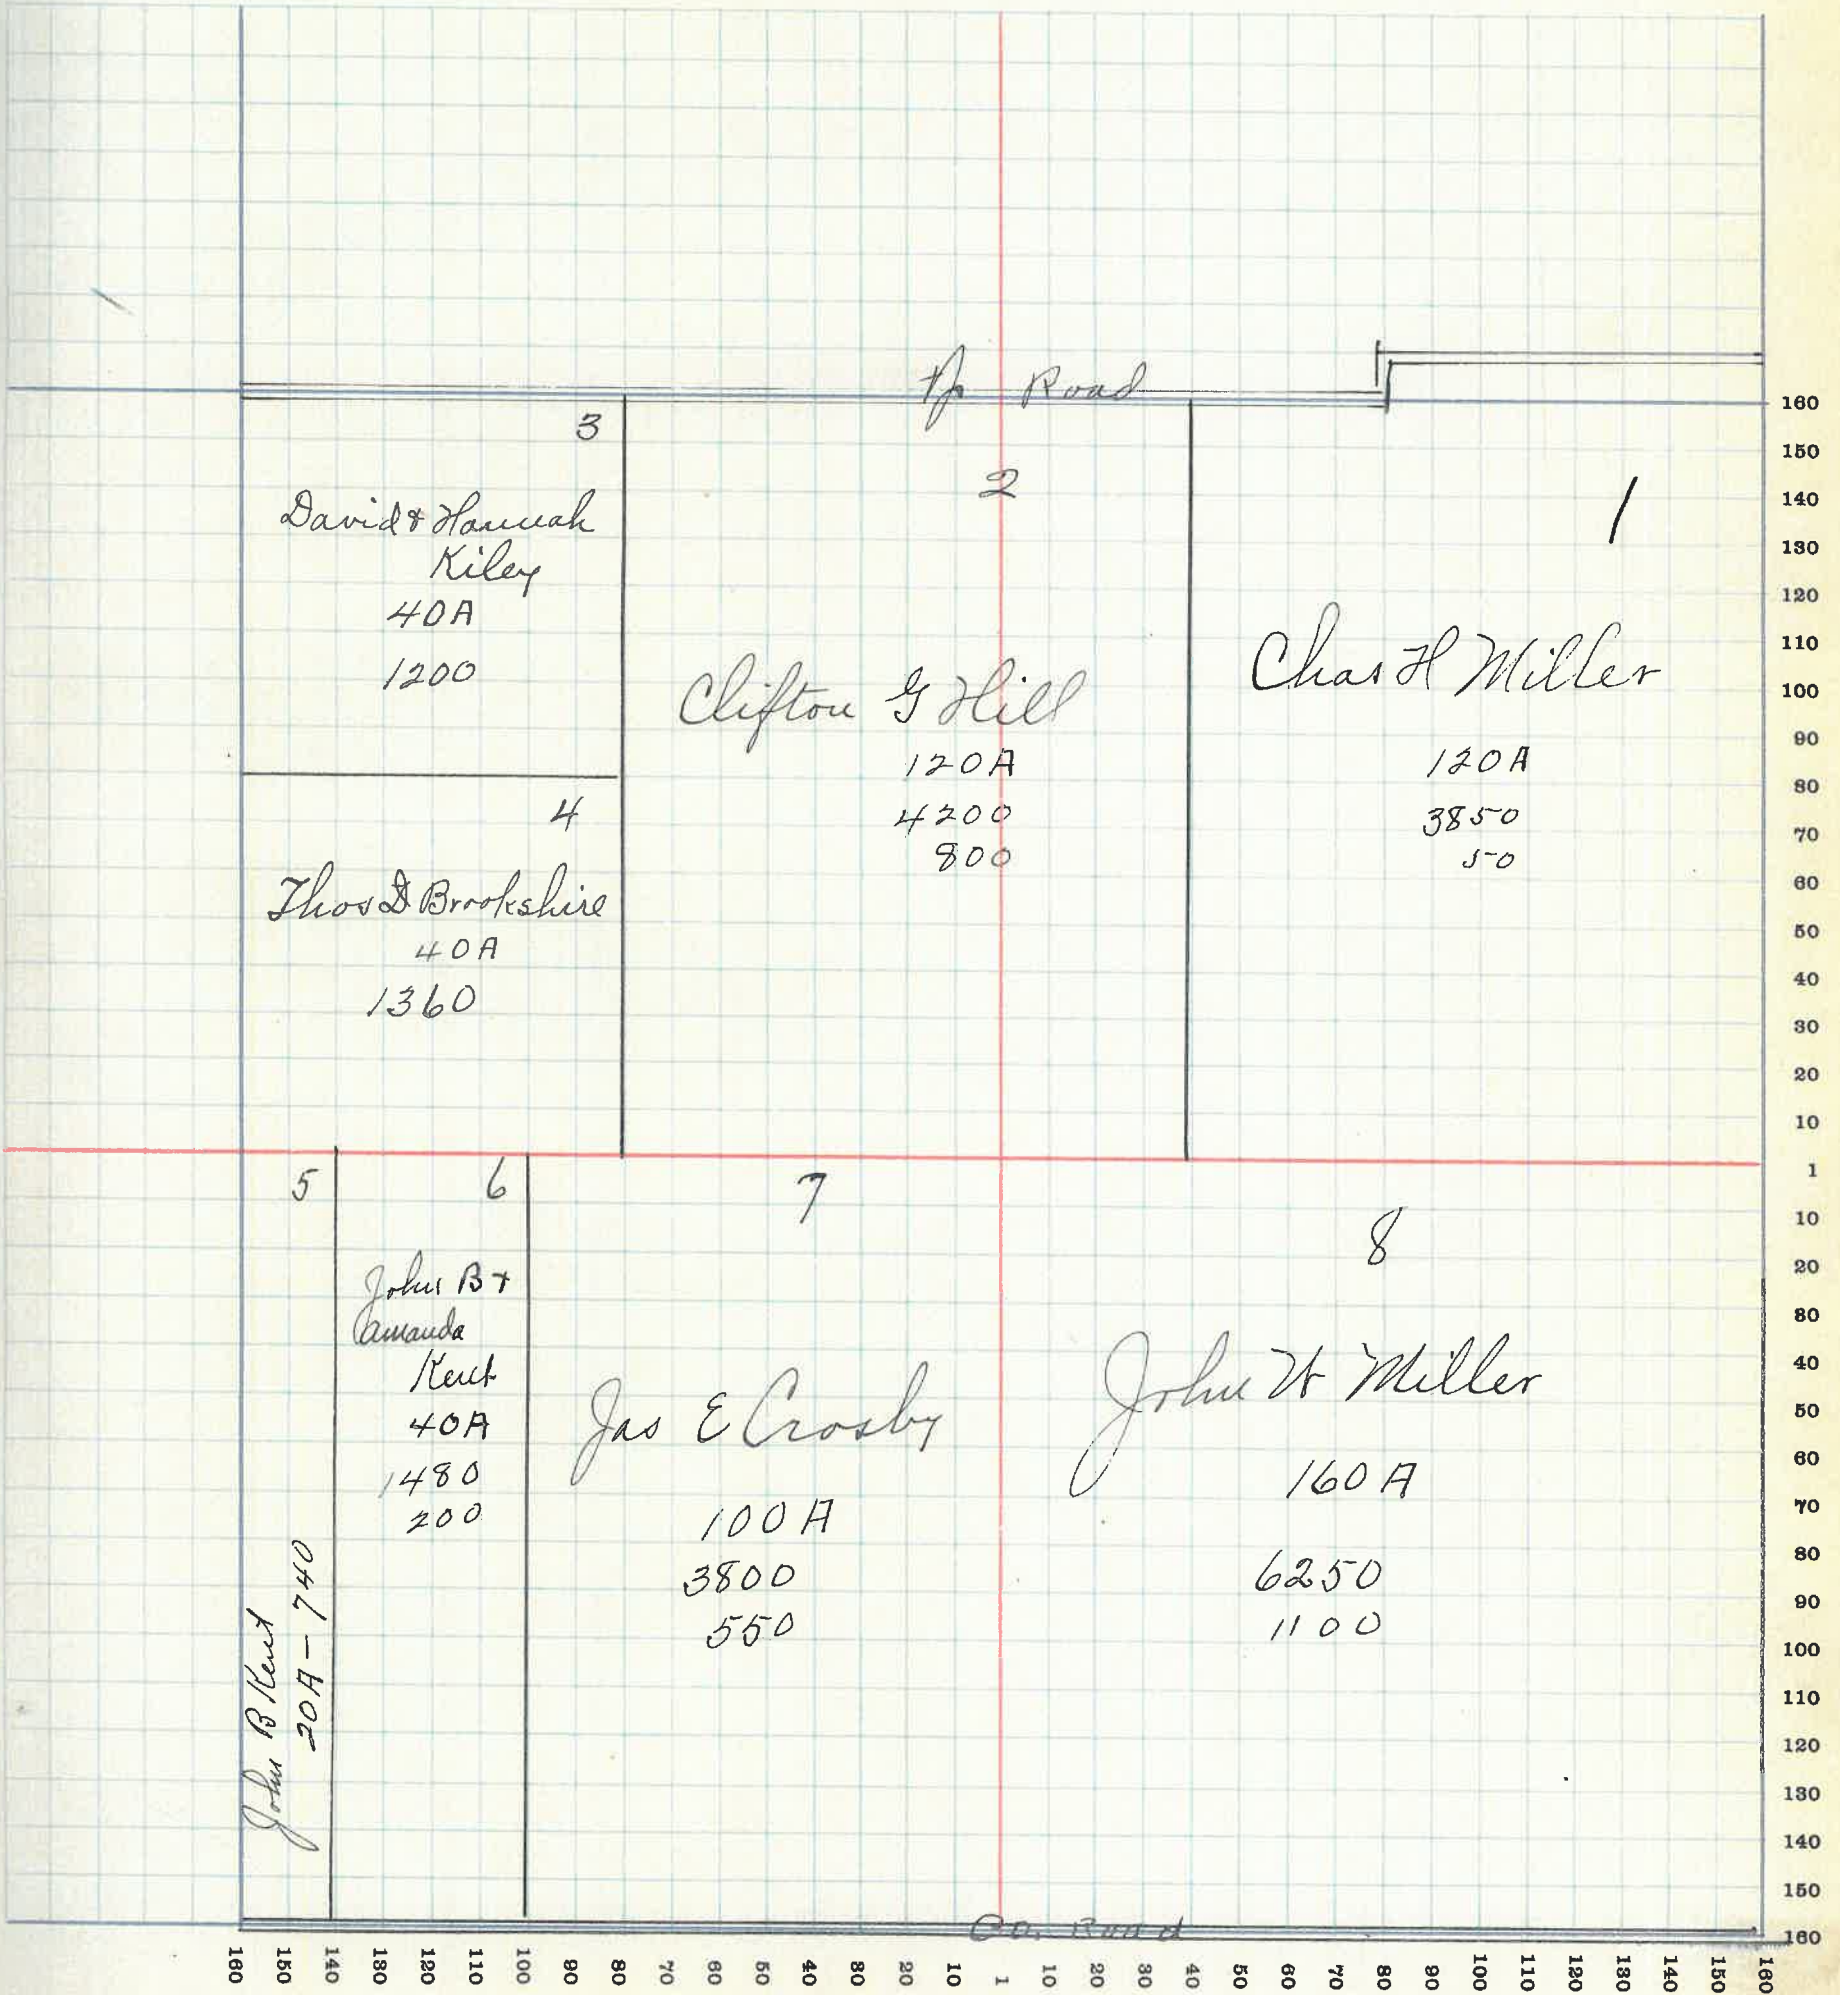 Tp Road
3
David & Hannah
Kiley
40A
1200
2
Clifton G Hill
120A
4200
800
1
Chas H Miller
120A
3850
50
4
Thos D Brookshire
40A
1360
5
John B Kent
20A - 740
6
John B &
Amanda
Kent
40A
1480
200
7
Jas E Crosby
100A
3800
550
8
John W Miller
160A
6250
1100
Co. Road
160
150
140
130
120
110
100
90
80
70
60
50
40
30
20
10
1
10
20
30
40
50
60
70
80
90
100
110
120
130
140
150
160
160 150 140 130 120 110 100 90 80 70 60 50 40 30 20 10 1 10 20 30 40 50 60 70 80 90 100 110 120 130 140 150 160